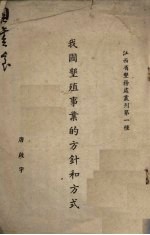 江西省墾務處叢刊第一種
我國墾殖事業的方針和方式
唐啟宇